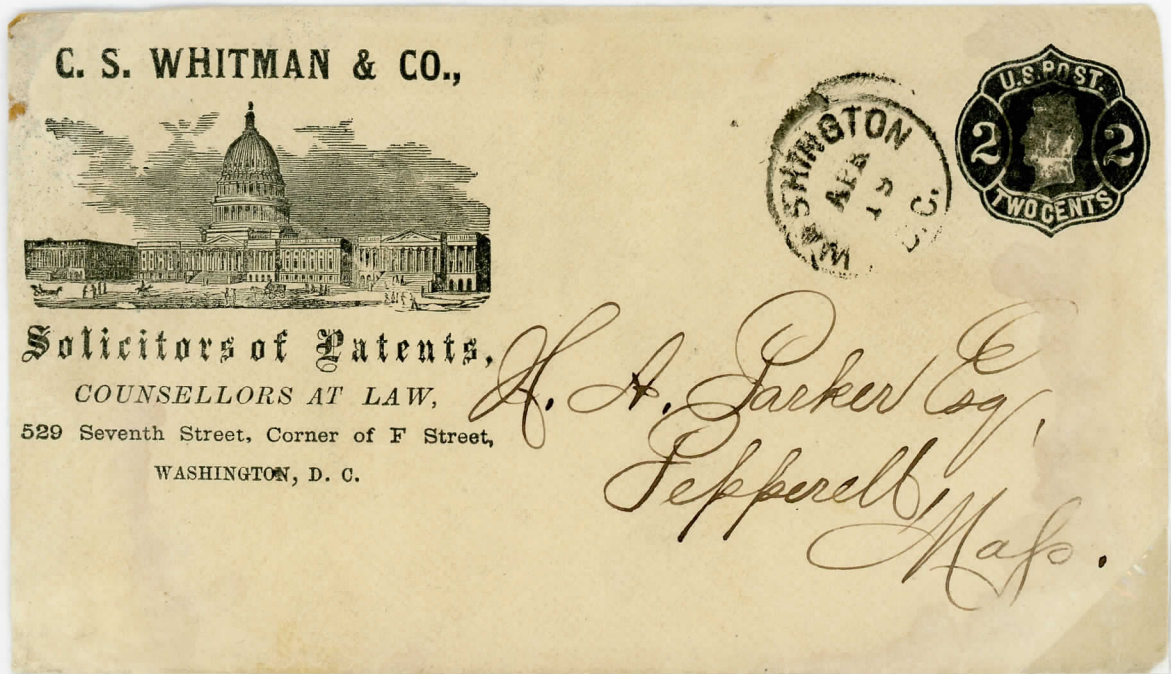 C. S. WHITMAN & CO.,
Solicitors of Patents,
COUNSELLORS AT LAW,
529 Seventh Street, Corner of F Street,
WASHINGTON, D. C.
WASHINGTON
D.C.
U.S. POST.
2 2
TWO CENTS
H. A. Parker Esq,
Pepperell,
Maſs.